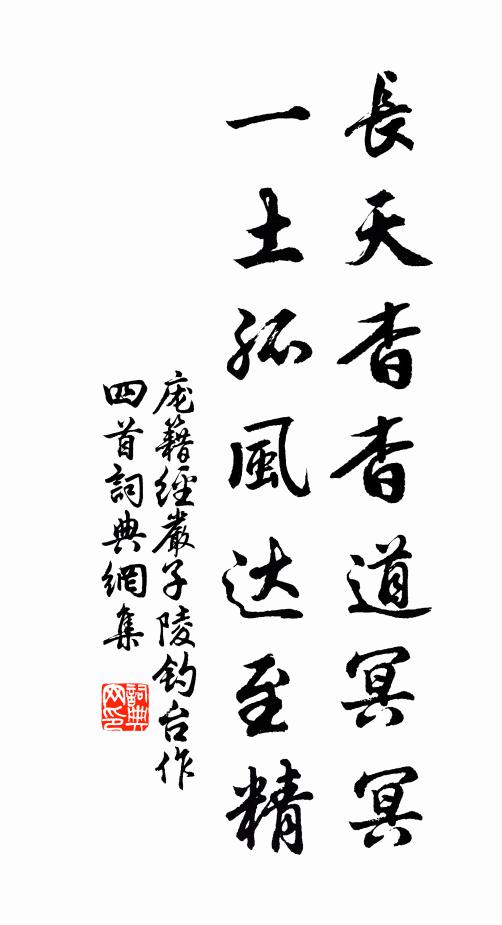 長天杳杳道冥冥
一土孤風达至精
庞籍經嚴子陵钓台作
四首詞典網集
詞典
网印